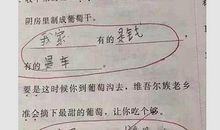 阴房里制成葡萄干。
我家 有的 是钱
有的 是车
要是这时候你到葡萄沟去，维吾尔族老乡
准会摘下最甜的葡萄，让你吃个够。